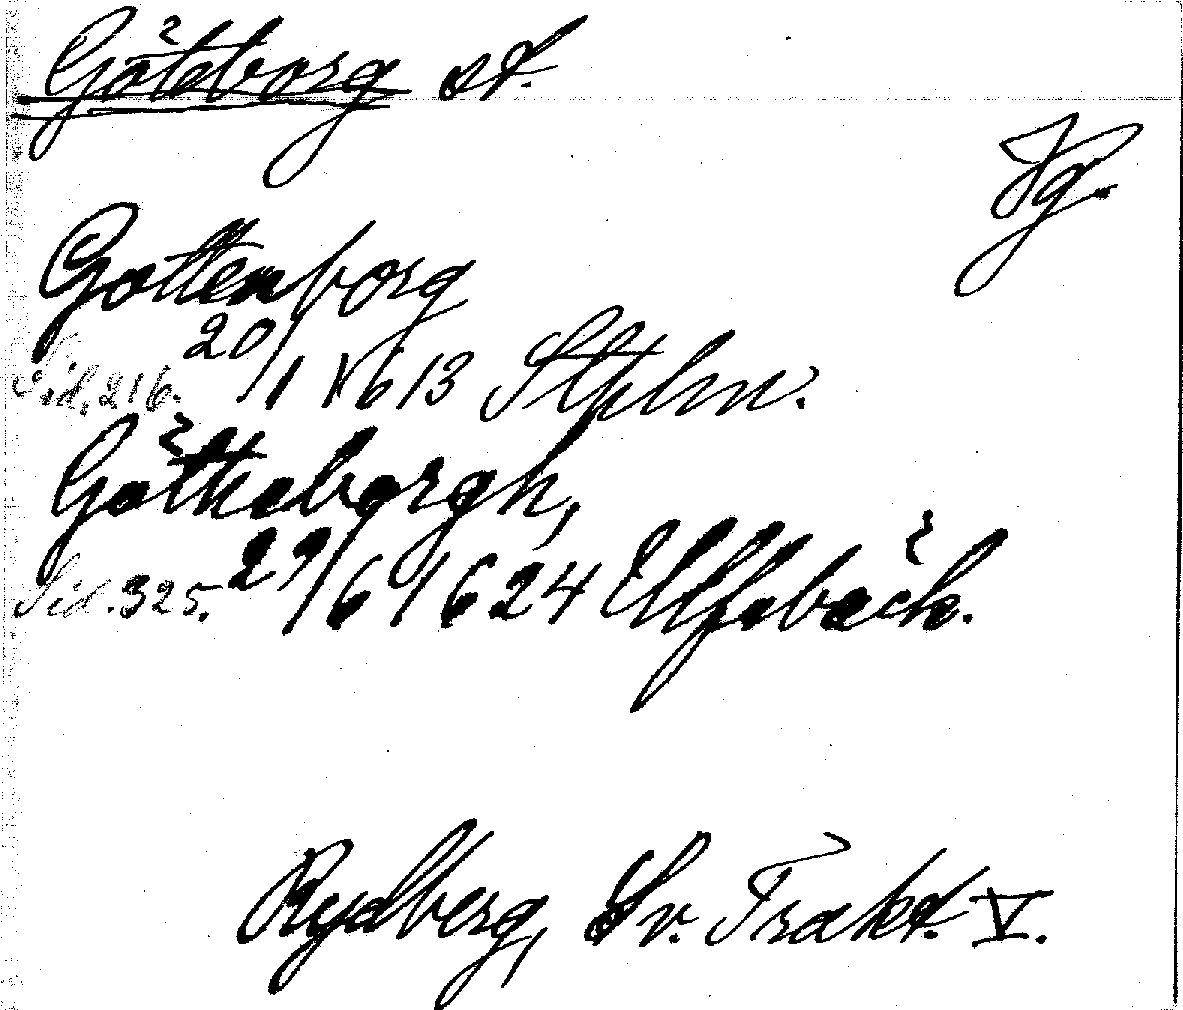 Göteborg st.
Vg.
Gottenborg
Sid. 216. 20/1 1613 Sthlm.
Götheborgh,
Sid. 325. 29/6 1624 Elfsbäck.
Rydberg, Sv. Trakt. V.